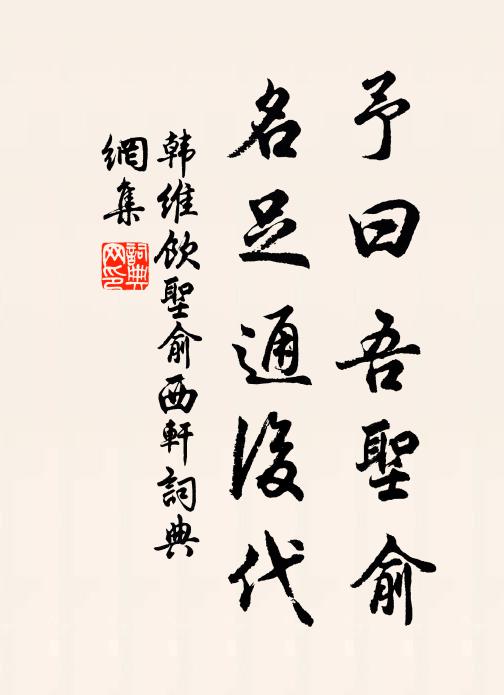 予曰吾聖俞
名足通後代
韩维饮聖俞西軒詞典
網集
詞典
网印